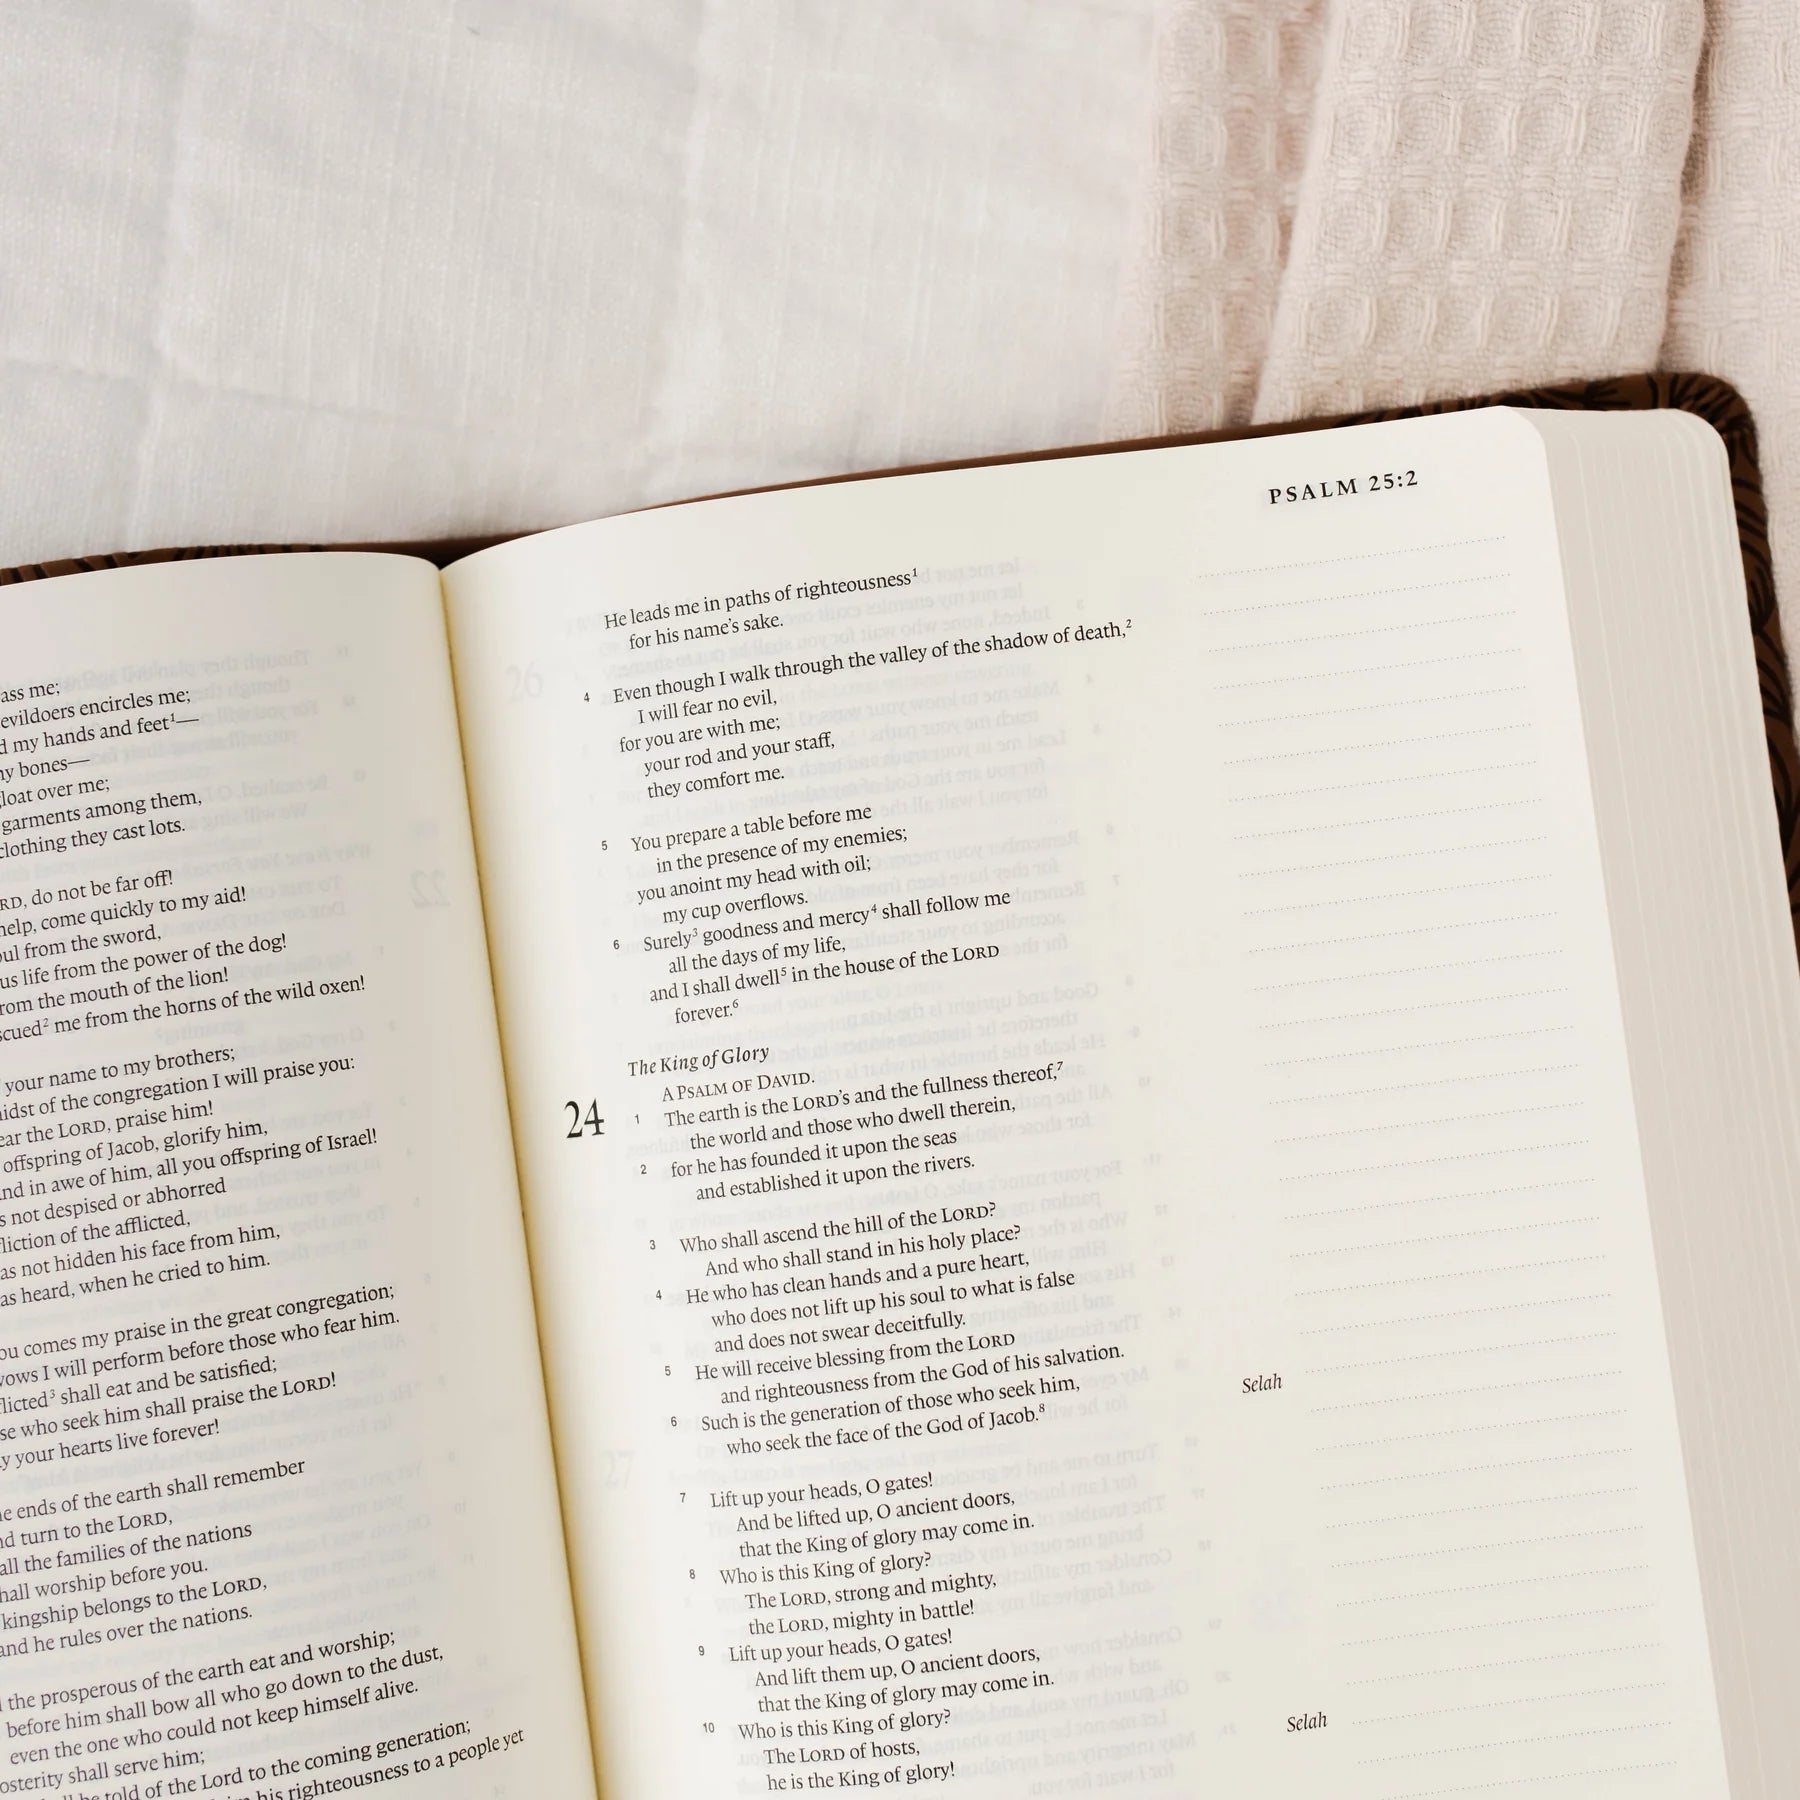 me;
evildoers encircles me;
my hands and feet¹—
bones—
over me;
garments among them,
clothing they cast lots.
do not be far off!
help, come quickly to my aid!
from the sword,
life from the power of the dog!
from the mouth of the lion!
me from the horns of the wild oxen!
your name to my brothers;
of the congregation I will praise you:
the LORD, praise him!
offspring of Jacob, glorify him,
in awe of him, all you offspring of Israel!
not despised or abhorred
of the afflicted,
not hidden his face from him,
heard, when he cried to him.
comes my praise in the great congregation;
I will perform before those who fear him.
shall eat and be satisfied;
who seek him shall praise the LORD!
your hearts live forever!
ends of the earth shall remember
turn to the LORD,
all the families of the nations
worship before you.
kingship belongs to the LORD,
and he rules over the nations.
the prosperous of the earth eat and worship;
before him shall bow all who go down to the dust,
even the one who could not keep himself alive.
shall serve him;
told of the Lord to the coming generation;
his righteousness to a people yet
PSALM 25:2
He leads me in paths of righteousness¹
for his name's sake.
4 Even though I walk through the valley of the shadow of death,²
I will fear no evil,
for you are with me;
your rod and your staff,
they comfort me.
5 You prepare a table before me
in the presence of my enemies;
you anoint my head with oil;
my cup overflows.
6 Surely³ goodness and mercy⁴ shall follow me
all the days of my life,
and I shall dwell⁵ in the house of the LORD
forever.⁶
The King of Glory
A PSALM OF DAVID.
24 1 The earth is the LORD's and the fullness thereof,⁷
the world and those who dwell therein,
2 for he has founded it upon the seas
and established it upon the rivers.
3 Who shall ascend the hill of the LORD?
And who shall stand in his holy place?
4 He who has clean hands and a pure heart,
who does not lift up his soul to what is false
and does not swear deceitfully.
5 He will receive blessing from the LORD
and righteousness from the God of his salvation.
6 Such is the generation of those who seek him,
who seek the face of the God of Jacob.⁸ Selah
7 Lift up your heads, O gates!
And be lifted up, O ancient doors,
that the King of glory may come in.
8 Who is this King of glory?
The LORD, strong and mighty,
the LORD, mighty in battle!
9 Lift up your heads, O gates!
And lift them up, O ancient doors,
that the King of glory may come in.
10 Who is this King of glory?
The LORD of hosts,
he is the King of glory! Selah